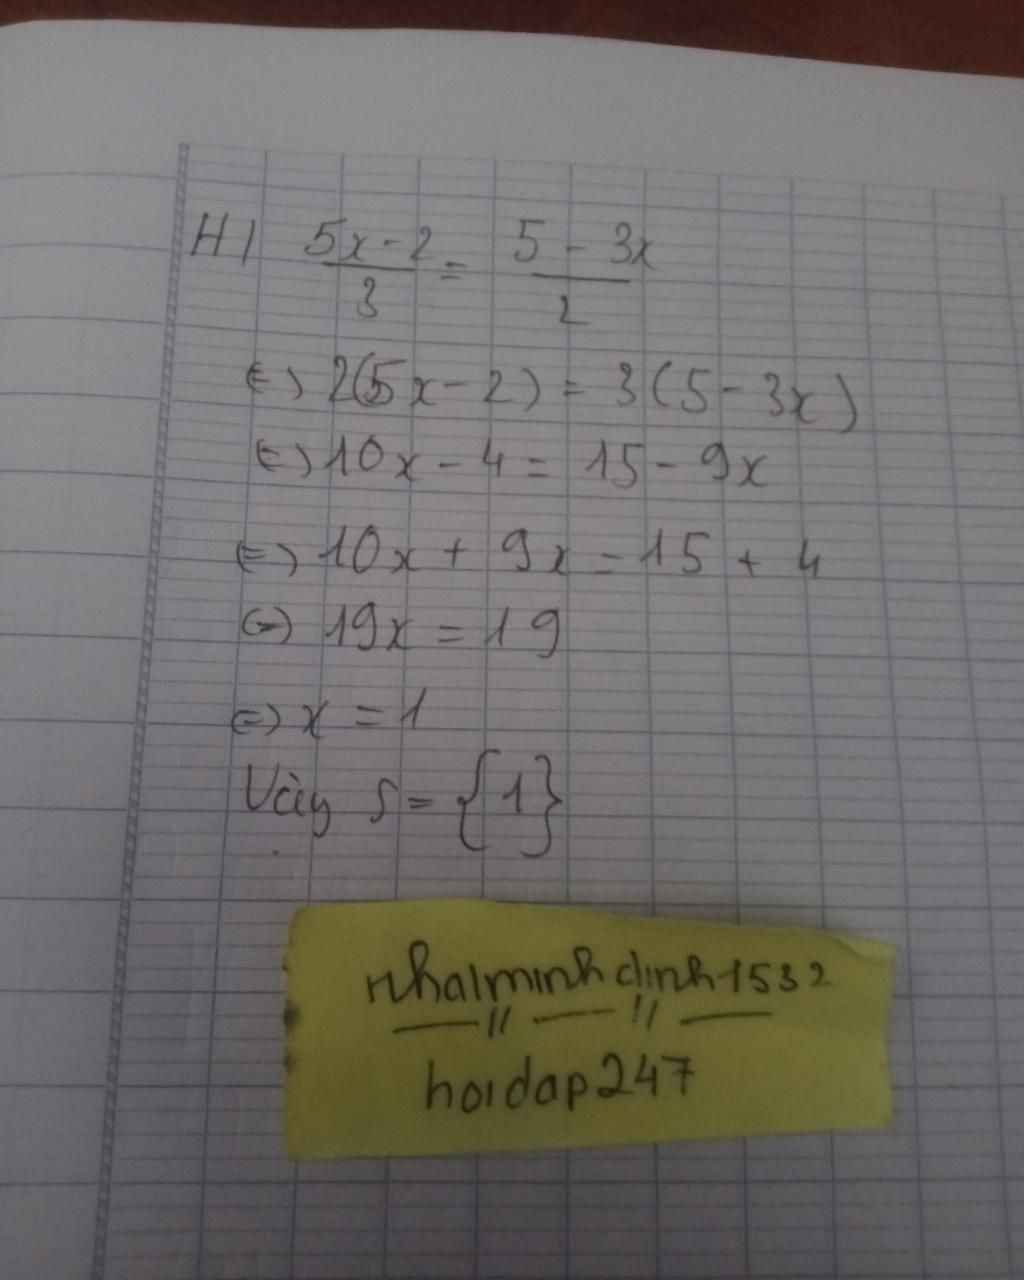 H) 5x-2/3 = 5-3x/2
⇔ 2(5x-2) = 3(5-3x)
⇔ 10x-4 = 15-9x
⇔ 10x + 9x = 15 + 4
⇔ 19x = 19
⇔ x = 1
Vậy S = {1}
nhalminhdinh1532
hoidap247